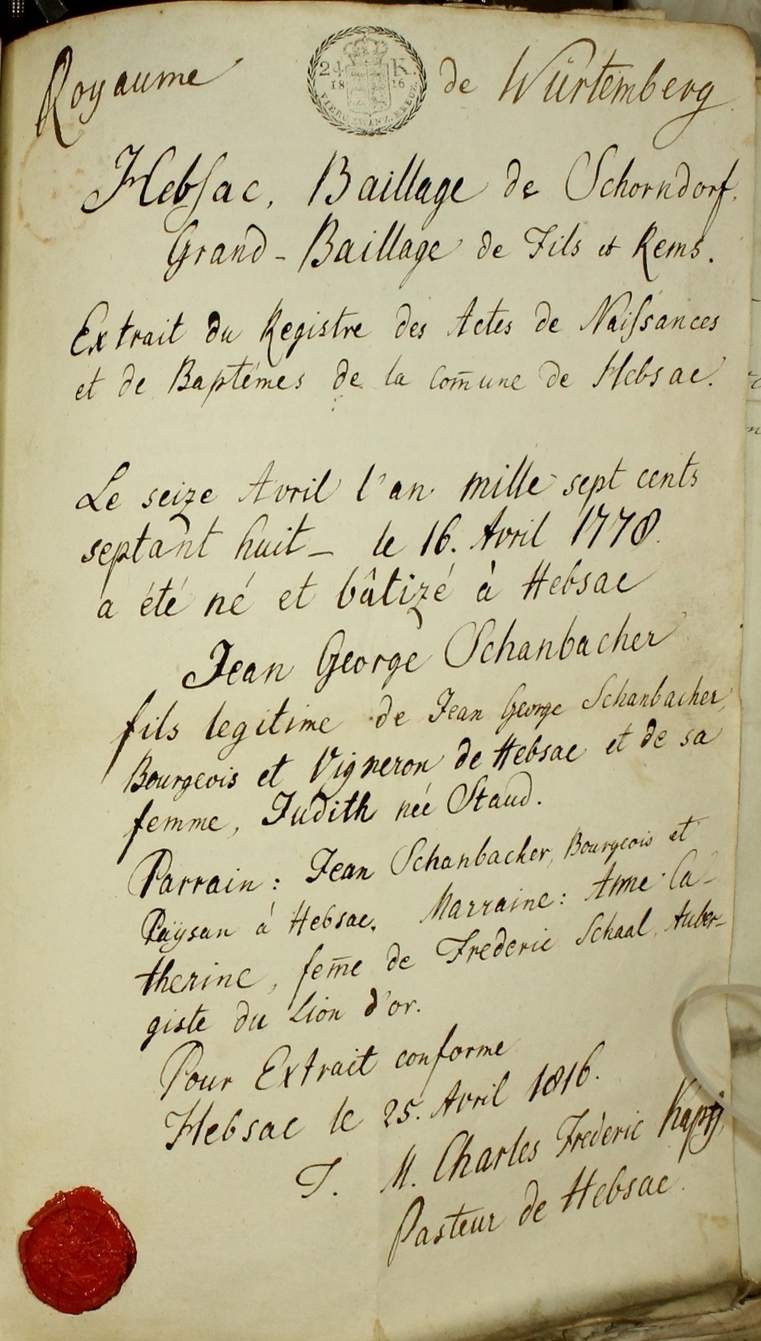 Royaume de Würtemberg
24 K.
18 16
VIER U. ZWANZ. KREUZ.
Hebsac, Baillage de Schorndorf.
Grand-Baillage de Fils et Rems.
Extrait du Registre des Actes de Naissances
et de Baptémes de la com̄une de Hebsac.
Le seize Avril l'an mille sept cents
septant huit - le 16. Avril 1778.
a été né et bâtizé à Hebsac
Jean George Schanbacher
fils legitime de Jean George Schanbacher,
Bourgeois et Vigneron de Hebsac et de sa
femme, Judith née Staud.
Parrain: Jean Schanbacher, Bourgeois et
Paÿsan à Hebsac. Marraine: Anne Ca-
therine, fem̄e de Frederic Schaal, Auber-
giste du Lion d'or.
Pour Extrait conforme
Hebsac le 25. Avril 1816.
T. M. Charles Frederic
Pasteur de Hebsac.